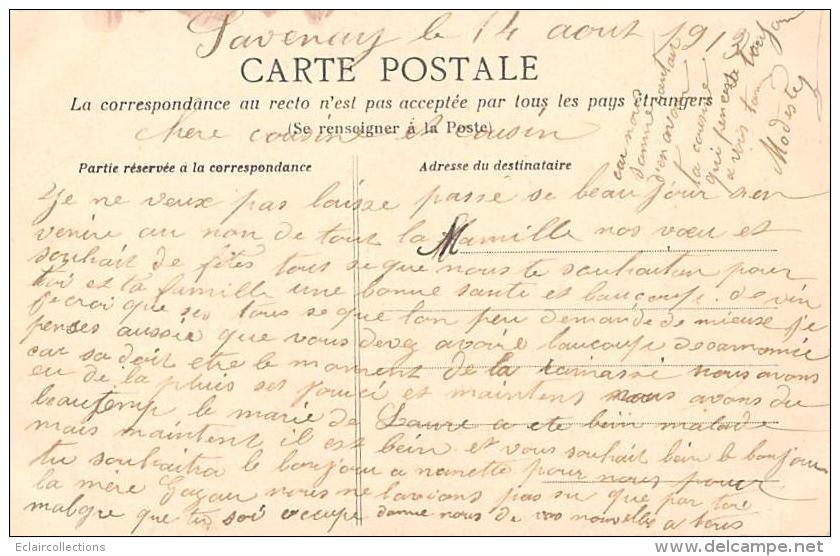 Savenay le 14 aout 1913
CARTE POSTALE
La correspondance au recto n'est pas acceptée par tous les pays étrangers
(Se renseigner à la Poste)
chere cousine et cousin
Partie réservée à la correspondance
Adresse du destinataire
Je ne veux pas laisse passé se beau jour sien
venire au non de tout la Mamille nos vœu et
souhait de fêtes tous se que nous te souhaiton pour
toi et ta famille une bonne santé et baucoup de vin
je croi que ses tous se que lon peu demande de mieuse je
penses aussie que vous devez avoire baucoup
car sa doit etre le moment de la ramassé nous avons
eu de la pluis ses jouci et maintens nous avons du
beautemp le marie de Laure a ete bein malade
mais maintent il est bein et vous souhait bein le bonjour
tu souhaitra le bonjour a nanette pour nous pour
la mère nous ne lavions pas su que par toi
malgre que tu soi occupe donne nous de vos nouvelles a tous
car nous
d'en avoir
ta cousine
qui pence a
a vous tous
Modeste
Eclaircollections
www.delcampe.net